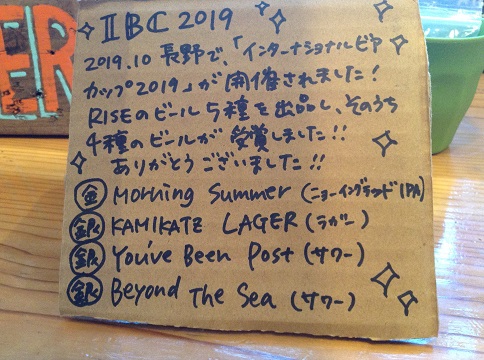 ER
IBC 2019
2019.10 長野で、「インターナショナルビア
カップ2019」が開催されました!
RISEのビール5種を出品し、そのうち
4種のビールが受賞しました!!
ありがとうございました!!
金 Morning Summer (ニューイングランドIPA)
銀 KAMIKATZ LAGER (ラガー)
銀 You've Been Post (サワー)
銀 Beyond The Sea (サワー)